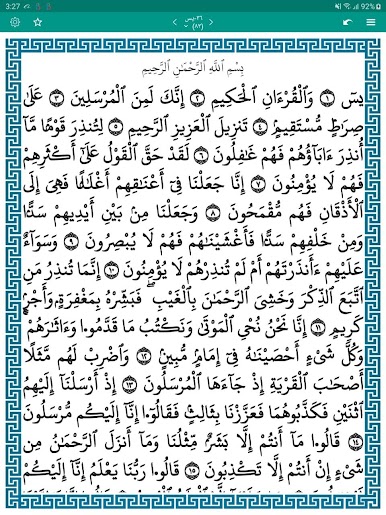 3:27 92%
٣٦-يس
(٨٣)
بِسْمِ ٱللَّهِ ٱلرَّحْمَٰنِ ٱلرَّحِيمِ
يسٓ ۝١ وَٱلْقُرْءَانِ ٱلْحَكِيمِ ۝٢ إِنَّكَ لَمِنَ ٱلْمُرْسَلِينَ ۝٣ عَلَىٰ
صِرَٰطٍ مُّسْتَقِيمٍ ۝٤ تَنزِيلَ ٱلْعَزِيزِ ٱلرَّحِيمِ ۝٥ لِتُنذِرَ قَوْمًا مَّآ
أُنذِرَ ءَابَآؤُهُمْ فَهُمْ غَٰفِلُونَ ۝٦ لَقَدْ حَقَّ ٱلْقَوْلُ عَلَىٰٓ أَكْثَرِهِمْ
فَهُمْ لَا يُؤْمِنُونَ ۝٧ إِنَّا جَعَلْنَا فِىٓ أَعْنَٰقِهِمْ أَغْلَٰلًا فَهِىَ إِلَى
ٱلْأَذْقَانِ فَهُم مُّقْمَحُونَ ۝٨ وَجَعَلْنَا مِنۢ بَيْنِ أَيْدِيهِمْ سَدًّا
وَمِنْ خَلْفِهِمْ سَدًّا فَأَغْشَيْنَٰهُمْ فَهُمْ لَا يُبْصِرُونَ ۝٩ وَسَوَآءٌ
عَلَيْهِمْ ءَأَنذَرْتَهُمْ أَمْ لَمْ تُنذِرْهُمْ لَا يُؤْمِنُونَ ۝١٠ إِنَّمَا تُنذِرُ مَنِ
ٱتَّبَعَ ٱلذِّكْرَ وَخَشِىَ ٱلرَّحْمَٰنَ بِٱلْغَيْبِ ۖ فَبَشِّرْهُ بِمَغْفِرَةٍ وَأَجْرٍ
كَرِيمٍ ۝١١ إِنَّا نَحْنُ نُحْىِ ٱلْمَوْتَىٰ وَنَكْتُبُ مَا قَدَّمُوا۟ وَءَاثَٰرَهُمْ ۚ
وَكُلَّ شَىْءٍ أَحْصَيْنَٰهُ فِىٓ إِمَامٍ مُّبِينٍ ۝١٢ وَٱضْرِبْ لَهُم مَّثَلًا
أَصْحَٰبَ ٱلْقَرْيَةِ إِذْ جَآءَهَا ٱلْمُرْسَلُونَ ۝١٣ إِذْ أَرْسَلْنَآ إِلَيْهِمُ
ٱثْنَيْنِ فَكَذَّبُوهُمَا فَعَزَّزْنَا بِثَالِثٍ فَقَالُوٓا۟ إِنَّآ إِلَيْكُم مُّرْسَلُونَ
۝١٤ قَالُوا۟ مَآ أَنتُمْ إِلَّا بَشَرٌ مِّثْلُنَا وَمَآ أَنزَلَ ٱلرَّحْمَٰنُ مِن
شَىْءٍ إِنْ أَنتُمْ إِلَّا تَكْذِبُونَ ۝١٥ قَالُوا۟ رَبُّنَا يَعْلَمُ إِنَّآ إِلَيْكُمْ